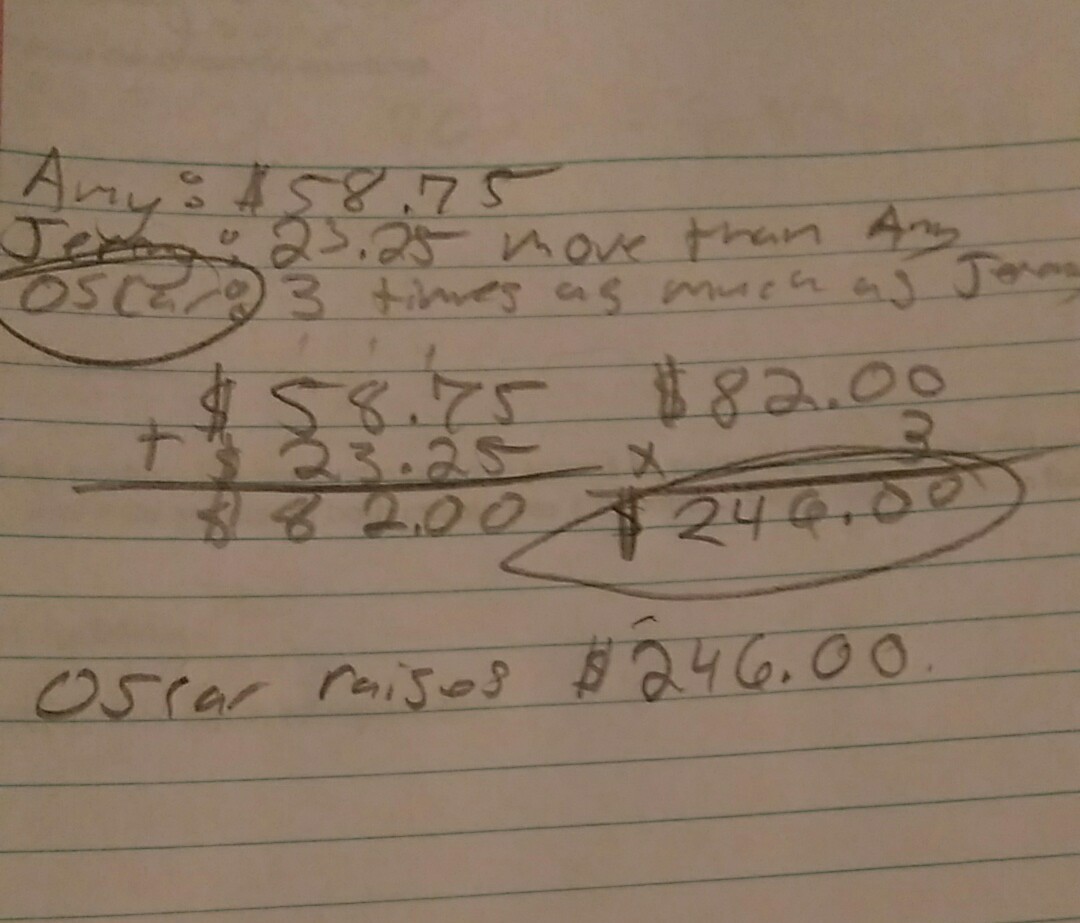 Amy: $58.75
Jeremy: 23.25 more than Amy
Oscar: 3 times as much as Jeremy
1 1 1
$ 58.75 $82.00
+ $ 23.25 x 3
$ 82.00 $246.00
Oscar raises $246.00.